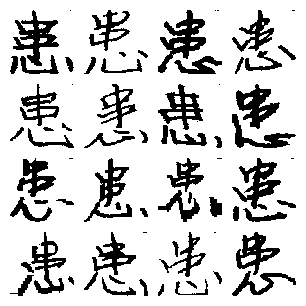 患患患患
患患患患
患患患患
患患患患